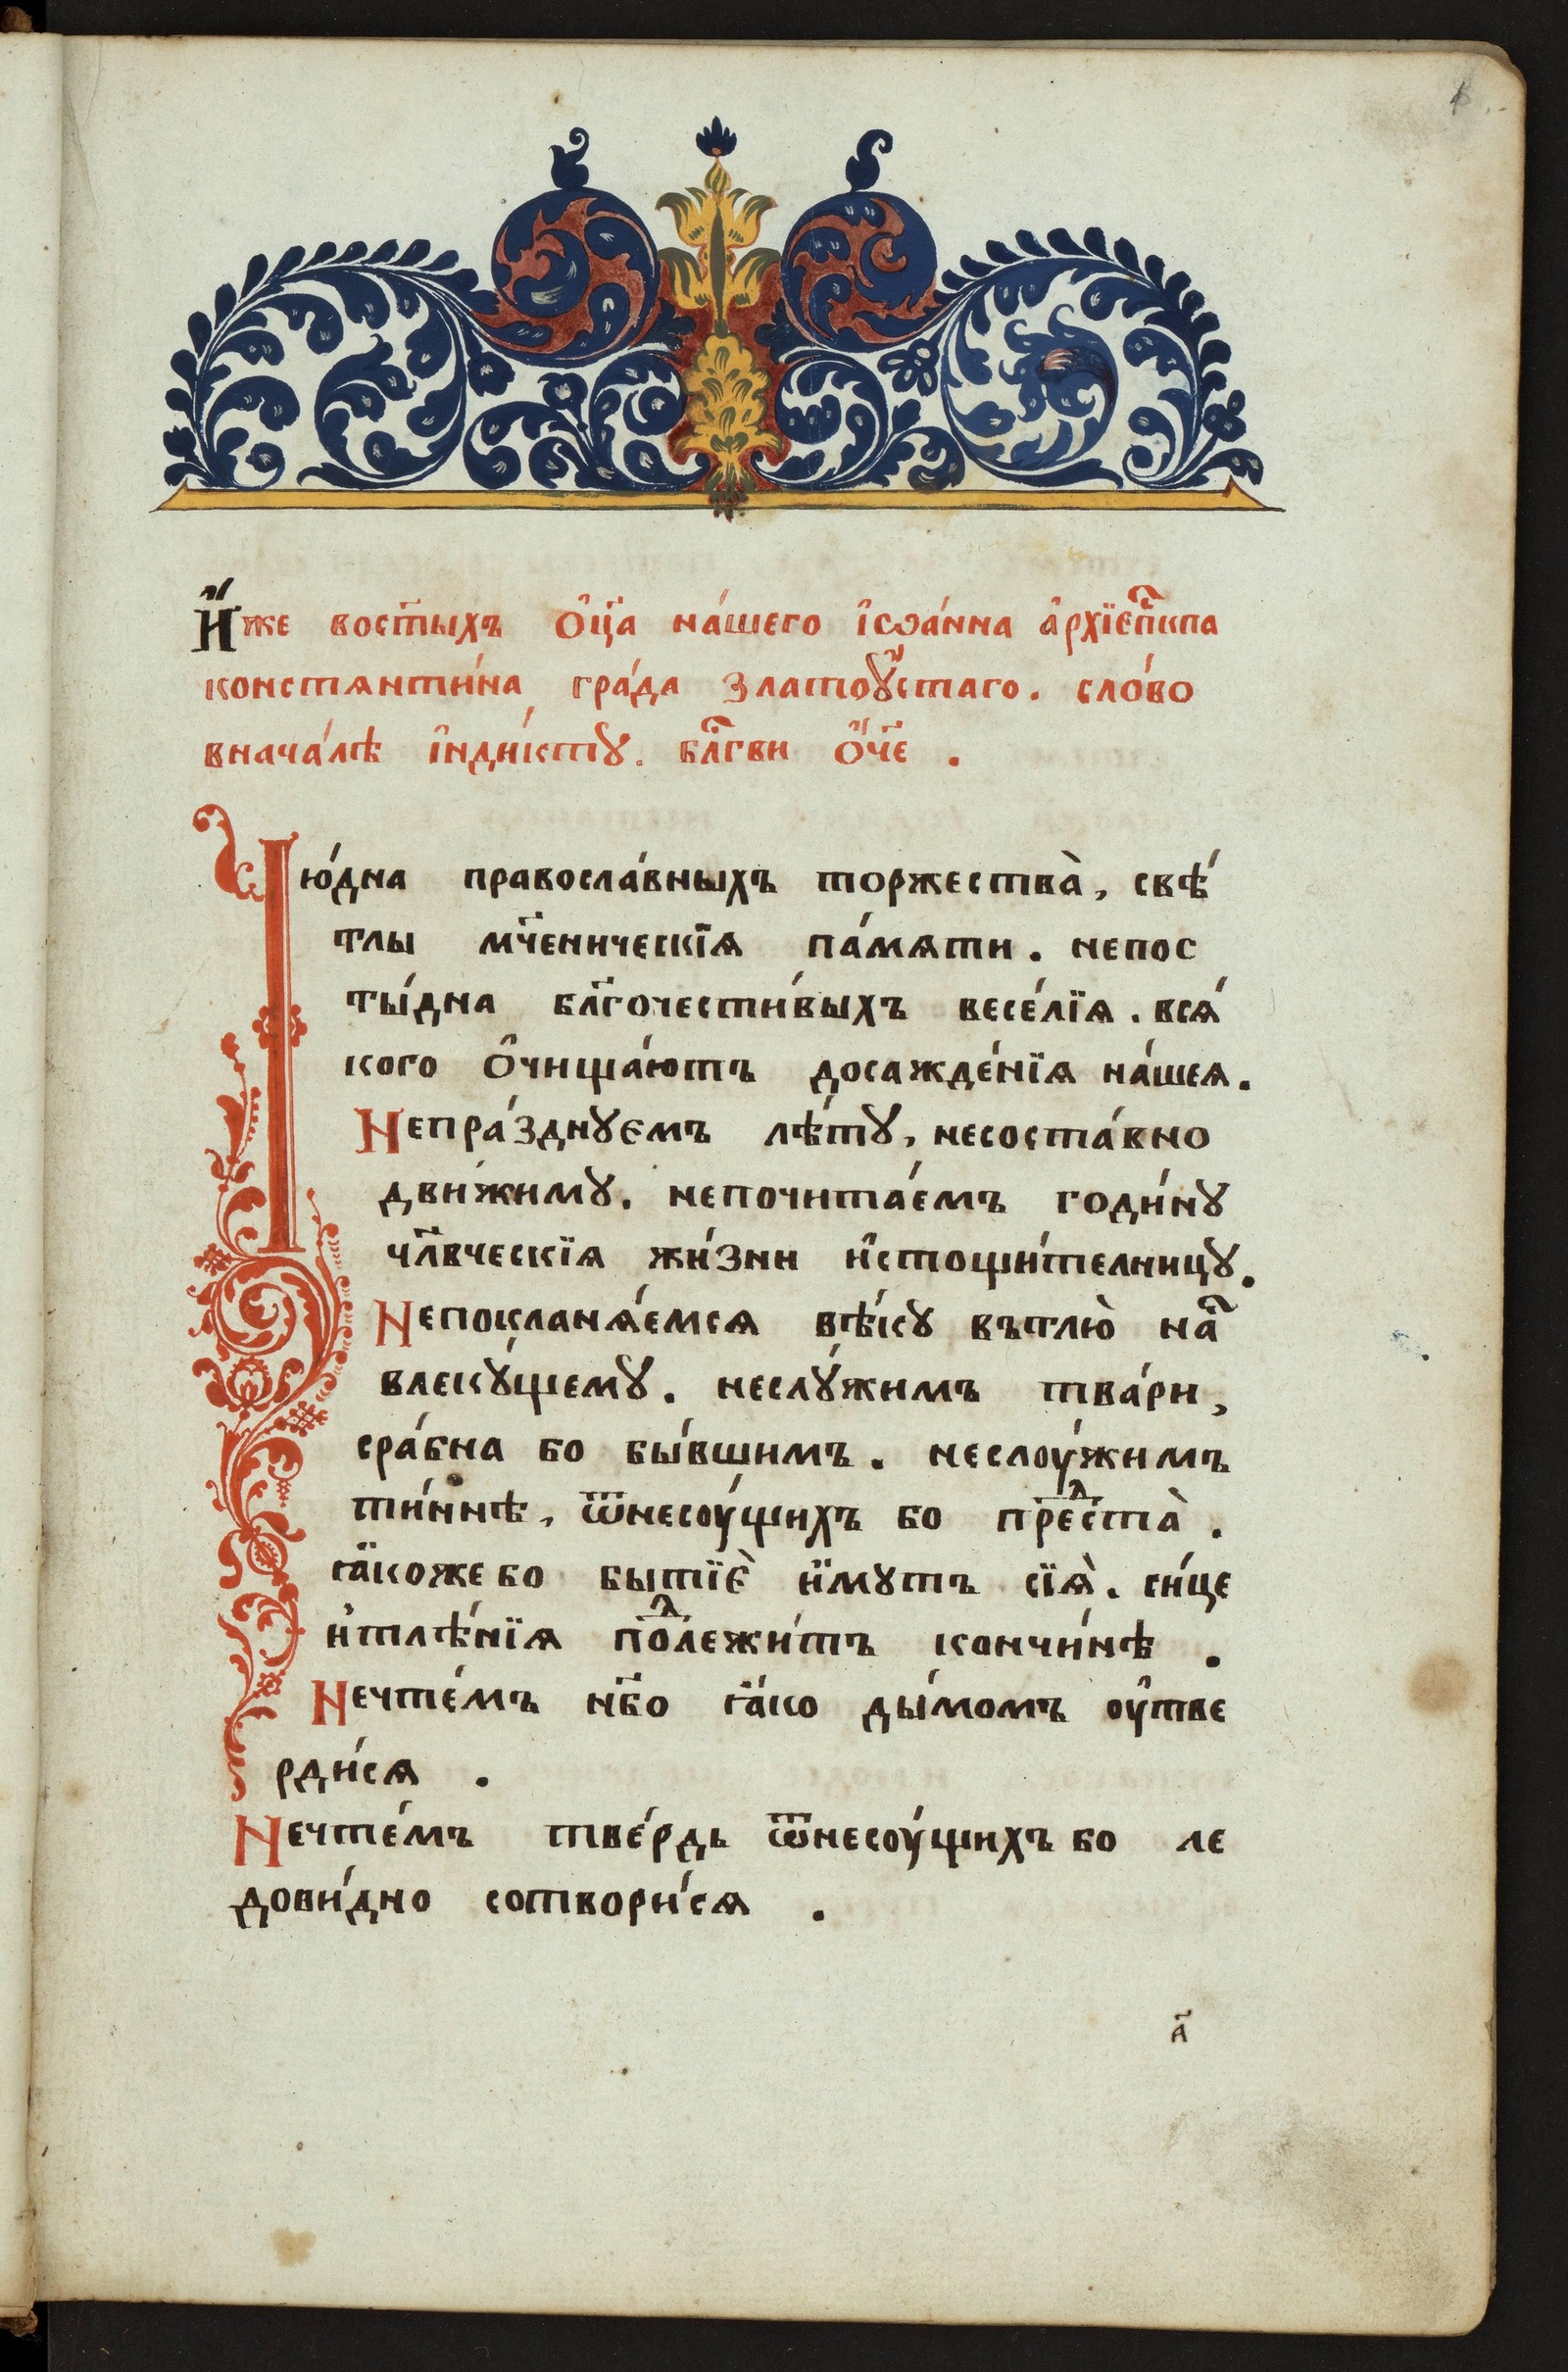 И҆́же восты́хъ О҆ц҃а на́шего і҆ѡа́нна а҆рхїеп҃кпа
констянти́на гра́да златоꙋ́стаго. сло́во
внача́лѣ і҆нди́ктꙋ. бл҃гви О҆́ч҃е .
Чю́дна правосла́вныхъ торжества̀, свѣ́
тлы мч҃еническїѧ па́мѧти. непос
ты́дна бл҃гочести́выхъ весе́лїѧ. всѧ́
кого О҆чища́ютъ досажде́нїѧ на́шеѧ.
Непра́зднꙋемъ лѣ́тꙋ, несоста́вно
дви́жимꙋ. непочита́емъ годи́нꙋ
чл҃вческїѧ жи́зни и҆стощи́телницꙋ.
Непоклана́емсѧ вѣ́кꙋ вътлю̀ на҃
влекꙋ́щемꙋ. неслꙋ́жимъ тва́ри,
сра́бна бо бы́вшимъ. неслоу́жимъ
ти́ннѣ, ѿнесоу́щихъ бо пред̾ста̀.
ꙗ҆́кожебо бытїѐ и҆́мꙋтъ сїѧ̀. си́це
и҆тлѣ́нїѧ под̾лежи́тъ кончи́нѣ .
Нечте́мъ нб҃о ꙗ҆́ко ды́момъ оу҆тве
рди́сѧ .
Нечте́мъ тве́рдь ѿнесоу́щихъ бо ле
дови́дно сотвори́сѧ .
а҃